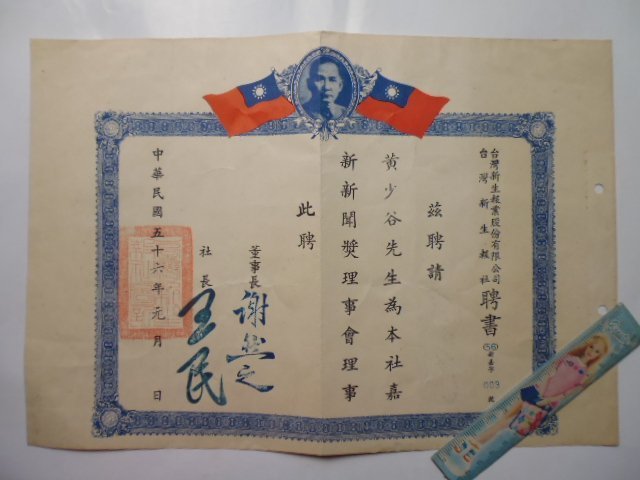 台灣新生報業股份有限公司
台灣新生報社
聘書
茲聘請
黃少谷先生為本社嘉
新新聞獎理事會理事
此聘
董事長 謝然之
社長 王民
中華民國五十六年元月 日